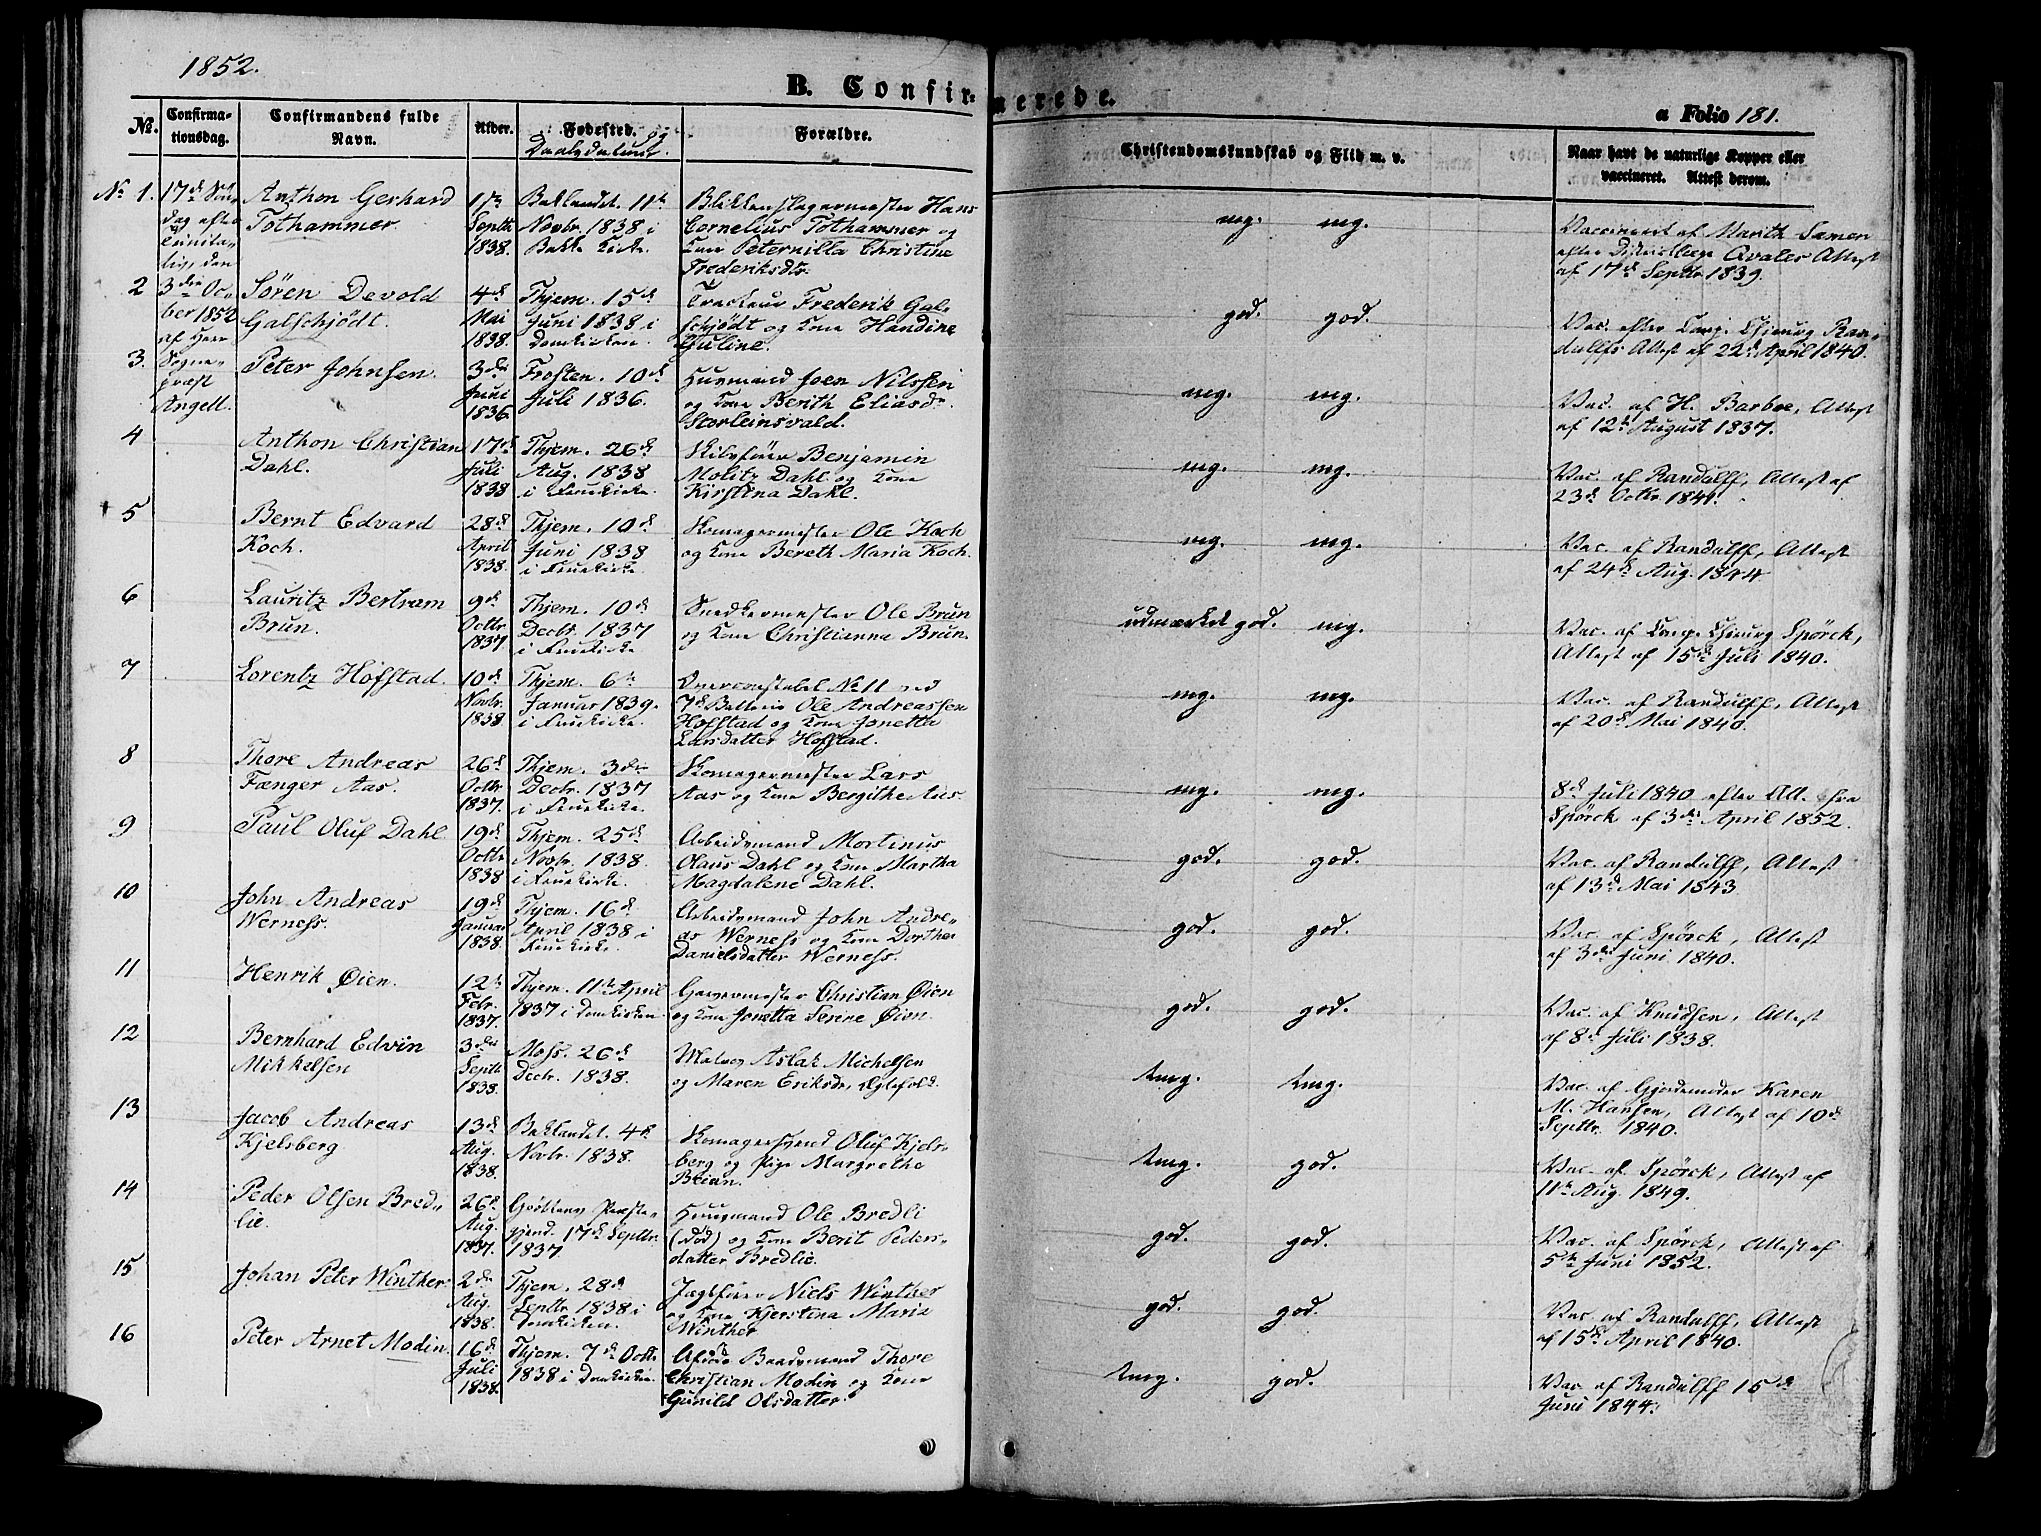 1852.
B. Confirmerede.
a Folio 181.
No. Confirma-tionsdag. Confirmandens fulde Navn. Alder. Fødested. Og Daabsdatum. Forældre. Christendomskundskab og Flid m. v. Naar havt de naturlige Kopper eller vaccineret. Attest derom.
17de Søn-
dag efter
Trinita-
tis, den
3die Oc-
ber 1852
af Herr
Sogne-
præst
Angell.
No 1. Anthon Gerhard
Tothammer.
17de
Septbr
1838.
Baklandet. 11te
Novbr. 1838 i
Bakke Kirke
Blikkenslagermester Hans
Cornelius Tothammer og
Kone Peternilla Christine
Frederiksdtr.
mg. mg.
Vaccineret af Marith Samen
efter Districtslæge Qvales Attest
af 17de Septbr 1839.
2 Søren Devold
Galschjödt.
4de
Mai
1838.
Thjem. 15de
Juni 1838 i
Domkirken.
Frederik Gal-
schjödt og Kone Handine
Juline.
god. god.
Vac. efter Corp. Chirurg Ran-
dulffs Attest af 22de April 1840.
3. Peter Johnsen.
3die
Juni
1836.
Frosten. 10de
Juli 1836.
Huusmand Joen Nilssen
og Kone Berith Eliasdr.
Storleinsvald.
mg. mg.
Vac. af H. Barboe, Attest
af 12te August 1837.
4 Anthon Christian
Dahl.
17de
Juli
1838
Thjem. 26de
Aug. 1838
i Fruekirke.
Skibsfører Benjamin
Molitz Dahl og Kone
Kirstina Dahl.
mg. mg.
Vac. af Randulff, Attest af
23de Octbr. 1841.
5 Bernt Edvard
Koch.
28de
April
1838.
Thjem. 10de
Juni 1838
i Fruekirke
Skomagermester Ole Koch
og Kone Bereth Maria Koch.
mg. mg.
Vac. af Randulff, Attest
af 24de Aug. 1844
6 Lauritz Bertram
Brun.
9de
Octbr.
1837.
Thjem. 10de
Decbr. 1837
i Fruekirke
Snedkermester Ole Brun
og Kone Christianna Brun.
udmærket god. mg.
Vac. af Corp. Chirurg Spörck,
Attest af 15de Juli 1840.
7 Lorentz Hofstad.
10de
Novbr.
1838
Thjem. 6te
Januar 1839.
i Fruekirke.
No 11 ved
7de Batterie Ole Andreassen
Hofstad og Kone Jonetta
Larsdatter Hofstad.
mg. mg.
Vac. af Randulff, Attest
af 20de Mai 1840.
8 Thore Andreas
Fænger Aas.
26de
Octbr.
1837.
Thjem. 3die
Decbr. 1837
i Fruekirke.
Skomagermester Lars
Aas og Kone Bergithe Aas.
mg. mg.
8de Juli 1840 efter Att. fra
Spörck af 3die April 1852.
9 Paul Oluf Dahl.
19de
Octbr.
1838
Thjem. 25de
Novbr. 1838.
i Fruekirke.
Arbeidsmand Mortinus
Olaus Dahl og Kone Martha
Magdalene Dahl.
god. god.
Vac. af Randulff, Attest
af 13de Mai 1843
10 John Andreas
Werness.
19de
Januar
1838.
Thjem. 16de
April 1838 i
Fruekirke.
Arbeidsmand John Andre-
as Werness og Kone Dorthea
Danielsdatter Werness.
god. god.
Vac. af Spörck, Attest
af 3die Juni 1840.
11 Henrik Øien.
12te
Febr.
1837.
Thjem. 11te April
1837 i Domkirken
Garvermester Christian Øien
og Kone Jonetta Serine Øien.
god. god.
Vac. af Knudsen, Attest
af 8de Juli 1838.
12 Bernhard Edvin
Mikkelsen
3die
Septbr
1838.
Moss. 26de
Decbr. 1838.
Aslak Michelsen
og Maren Eriksdr, Egtefolk.
tmg. tmg.
Vac. af Gjordemoder Karen
M. Hansen, Attest af 10de
Septbr. 1840.
13 Jacob Andreas
Kjelsberg
13de
Aug.
1838.
Baklandet. 4de
Novbr. 1838.
Skomagersvend Oluf Kjels-
berg og Pige Margrethe
Brian.
tmg. god.
Vac. af Spörck, Attest af
11te Aug. 1849.
14 Peder Olsen Bred-
lie.
26de
Aug.
1837.
Præste-
gjeld. 17de Septbr.
1837
Huusmand Ole Bredli
(død) og Kone Berit Peders-
datter Bredlie.
god. god.
Vac. af Spörck, Attest af
5te Juni 1852.
15 Johan Peter Winther.
2den
Aug.
1838.
Thjem. 28de
Septbr. 1838 i
Domkirken.
Jægtfører Niels Winther
og Kone Kjerstina Maria
Winther
god. god.
Vac. af Randulff, Attest
af 15de April 1840.
16 Peter Arnet Modin.
16de
Juli
1838.
Thjem. 7de Octbr.
1838 i Domkirken.
Afdøde Baadsmand Thore
Christian Modin og Kone
Gunild Olsdatter.
tmg. god.
Vac. af Randulff 15de
Juni 1844.